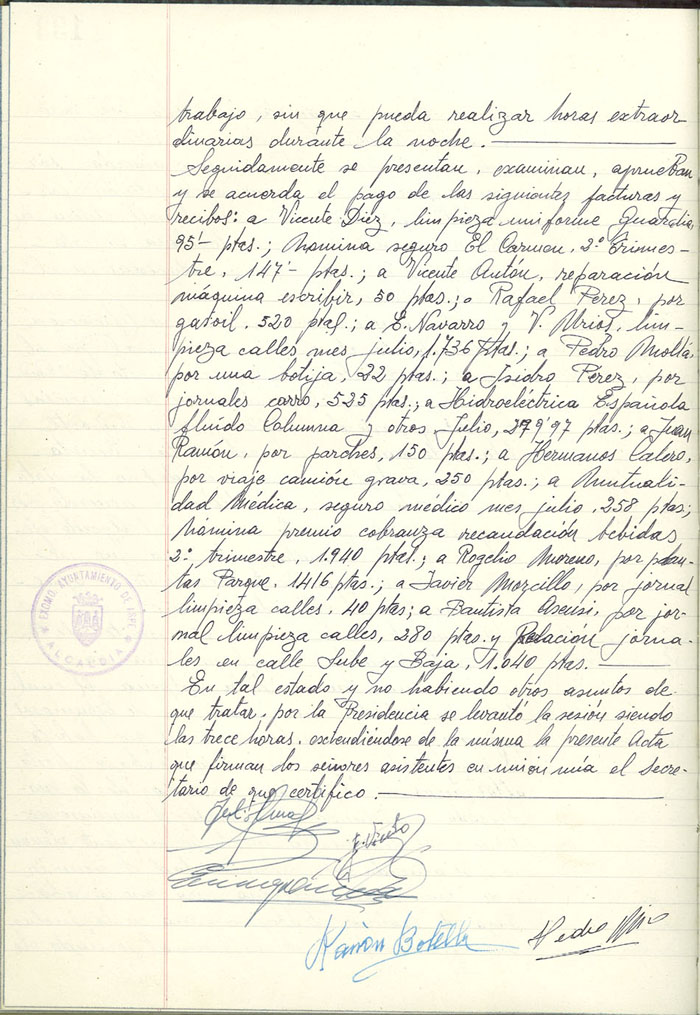 trabajo, sin que pueda realizar horas extraor
dinarias durante la noche.
Seguidamente se presentan, examinan, aprueban
y se acuerda el pago de las siguientes facturas y
recibos: a Vicente Díez, limpieza uniforme Guardia,
95- ptas.; Nómina seguro El Carmen, 2º trimes-
tre, 147'- ptas.; a Vicente Antón, reparación
máquina escribir, 50 ptas.; a Rafael Pérez, por
gasoil, 520 ptas.; a E. Navarro y V. Mrios, lim-
pieza calles mes julio, 1.736 ptas.; a Pedro Moltá,
por una botija, 22 ptas.; a Isidro Pérez, por
jornales carro, 525 ptas.; a Hidroeléctrica Española
fluído Columna y otros Julio, 279'97 ptas.; a Juan
Ramón, por parches, 150 ptas.; a Hermanos Calero,
por viaje camión grava, 250 ptas.; a Mutuali-
dad Médica, seguro médico mes julio, 258 ptas;
Nómina premio cobranza recaudación bebidas
2º trimestre, 1.940 ptas.; a Rogelio Moreno, por plan-
tas Parque, 1416 ptas.; a Javier Morcillo, por jornal
limpieza calles, 40 ptas; a Bautista Asensi, por jor-
nal limpieza calles, 280 ptas. y Relación jorna-
les en calle Sube y Baja, 1.040 ptas.
En tal estado y no habiendo otros asuntos de
que tratar, por la Presidencia se levantó la sesión siendo
las trece horas, extendiéndose de la misma la presente Acta
que firman los señores asistentes en unión mía el Secre-
tario de que certifico.
Ramón Botella
Pedro
EXCMO. AYUNTAMIENTO DE
ALCALDIA